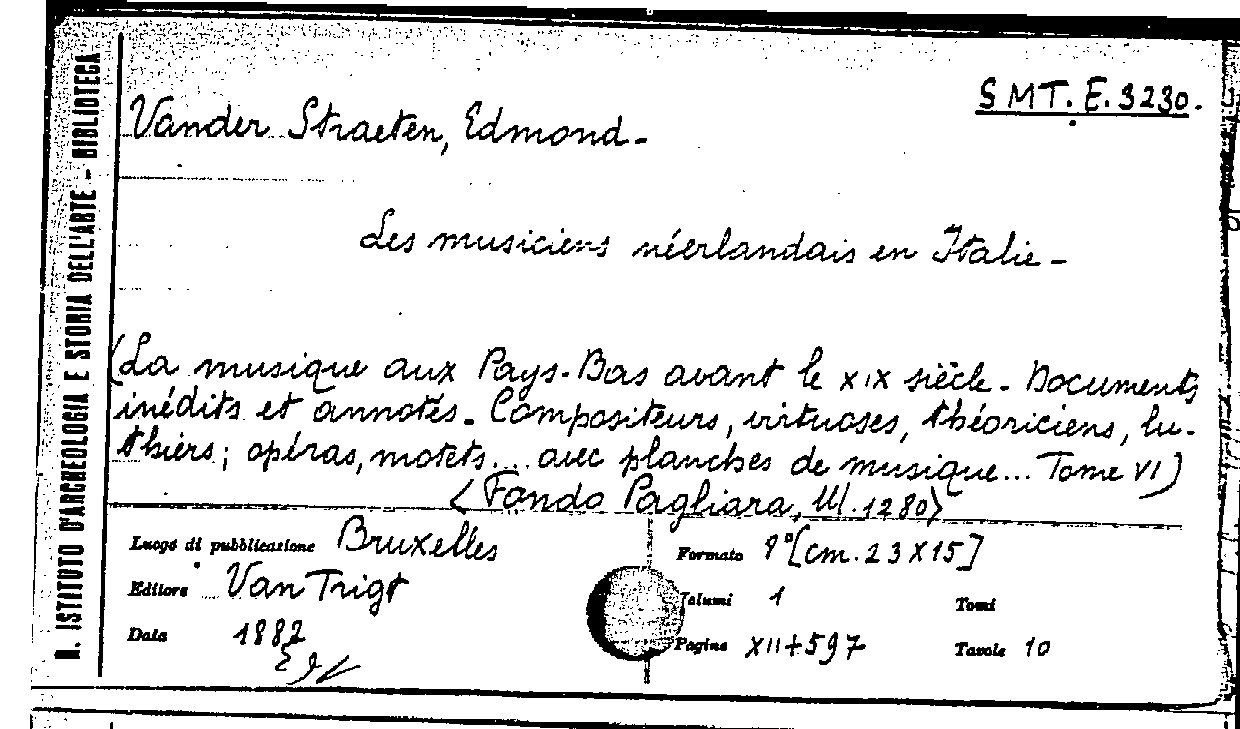 R. ISTITUTO D'ARCHEOLOGIA E STORIA DELL'ARTE - BIBLIOTECA
SMT. E. 3230.
Vander Straeten, Edmond-
Les musiciens néerlandais en Italie-
(La musique aux Pays-Bas avant le XIX siècle- Documents
inédits et annotés- Compositeurs, virtuoses, théoriciens, lu-
thiers; opéras, motets... avec planches de musique... Tome VI)
<Fondo Pagliara, 1280>
Luogo di pubblicazione Bruxelles
Formato 8°[cm. 23X15]
Editore Van Trigt
Volumi 1 Tomi
Data 1882
Pagine XII+597 Tavole 10